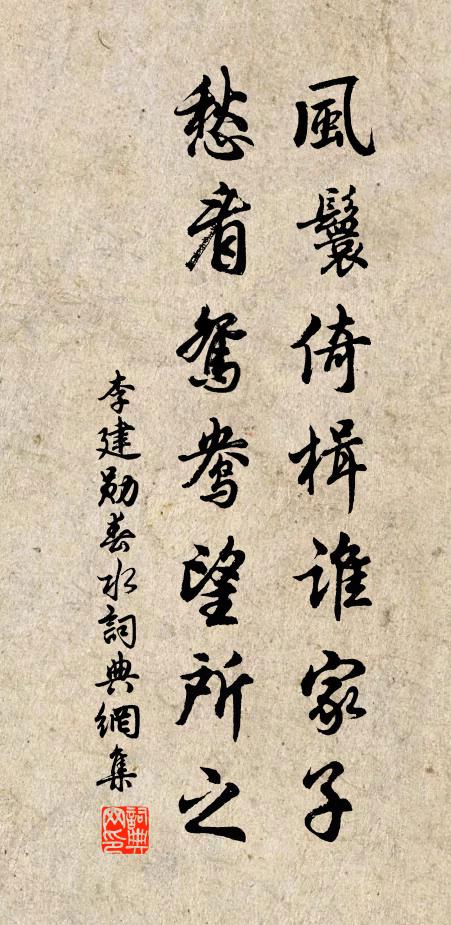 風鬟倚楫誰家子
愁看鴛鴦望所之
李建勛春水詞典網集
詞典網印